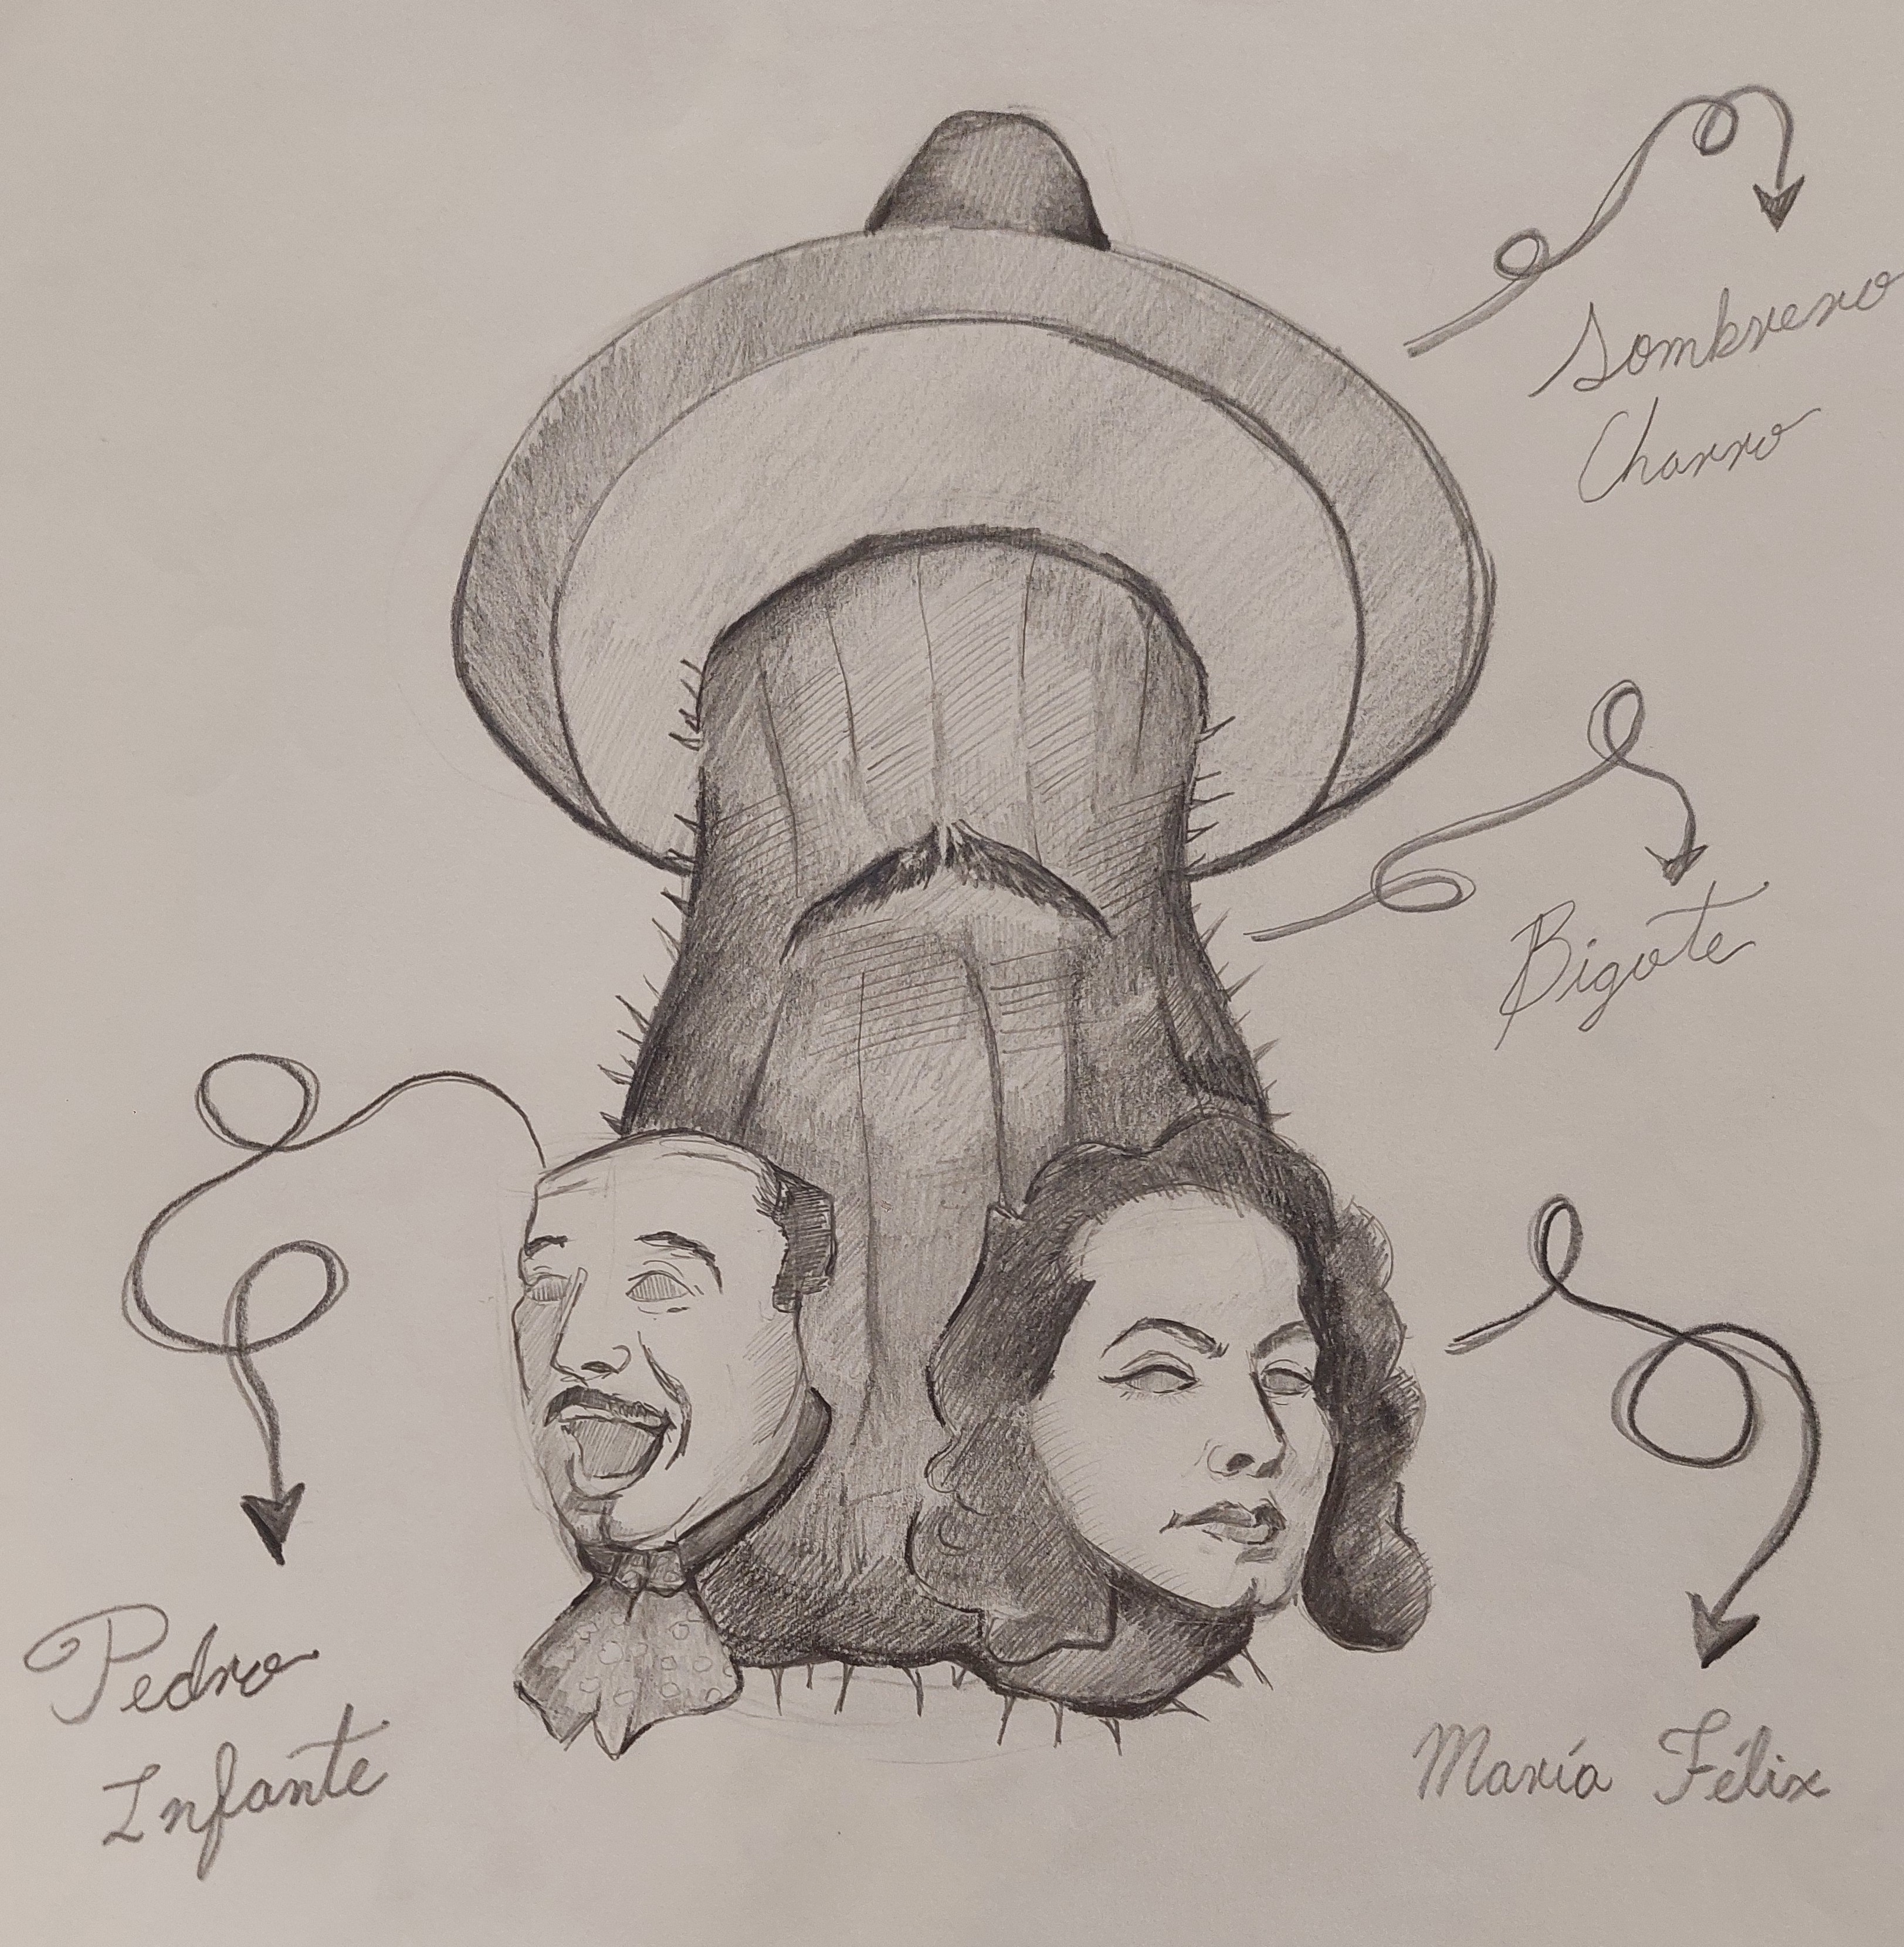 Sombrero
Charro
Bigote
Pedro
Infante
María Félix